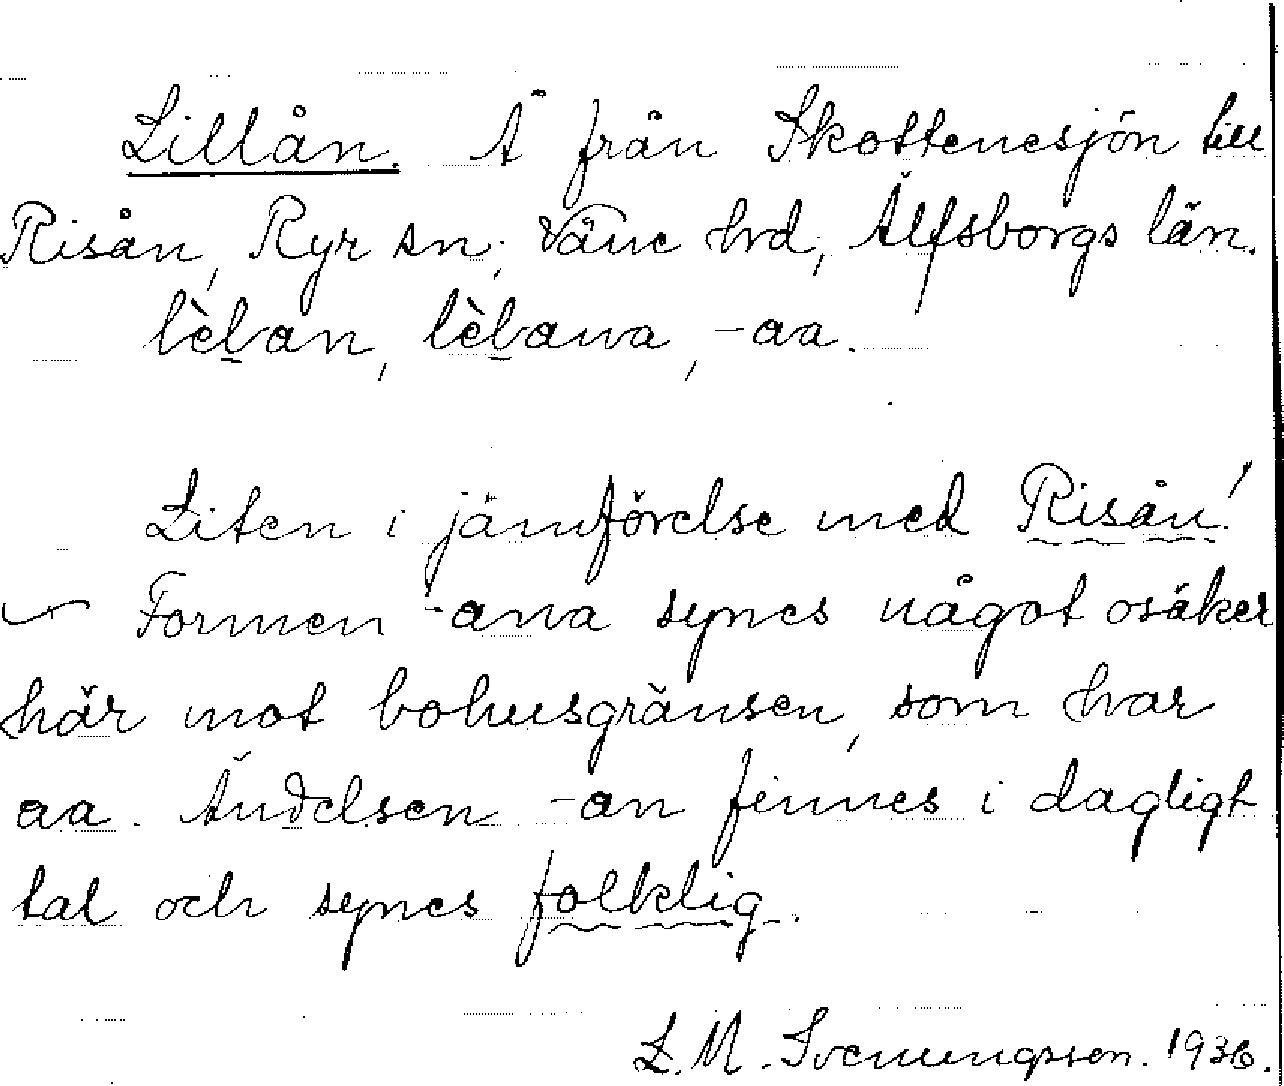 Lillån. Å från Skottenesjön till
Risån, Ryr sn, Väne hrd, Älfsborgs län.
lèlan, lèlana, -aa.
Liten i jämförelse med Risån!
— Formen -ana synes något osäker
här mot bohusgränsen, som har
aa. Ändelsen -an finnes i dagligt
tal och synes folklig.
L. M. Svenungsson. 1936.